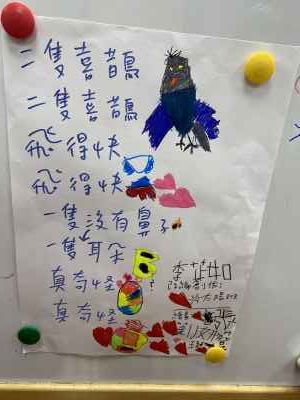 二隻喜鵲
二隻喜鵲
飛得快
飛得快
一隻沒有鼻子
一隻耳朵
真奇怪
真奇怪
B
李芷如